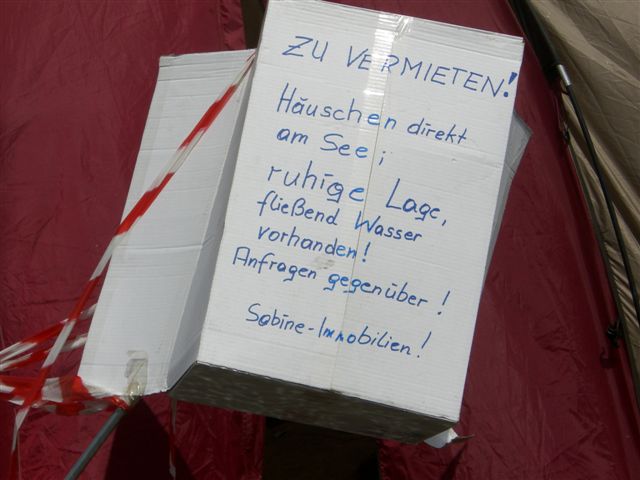 ZU VERMIETEN!
Häuschen direkt
am See;
ruhige Lage,
fließend Wasser
vorhanden!
Anfragen gegenüber!
Sabine-Immobilien!